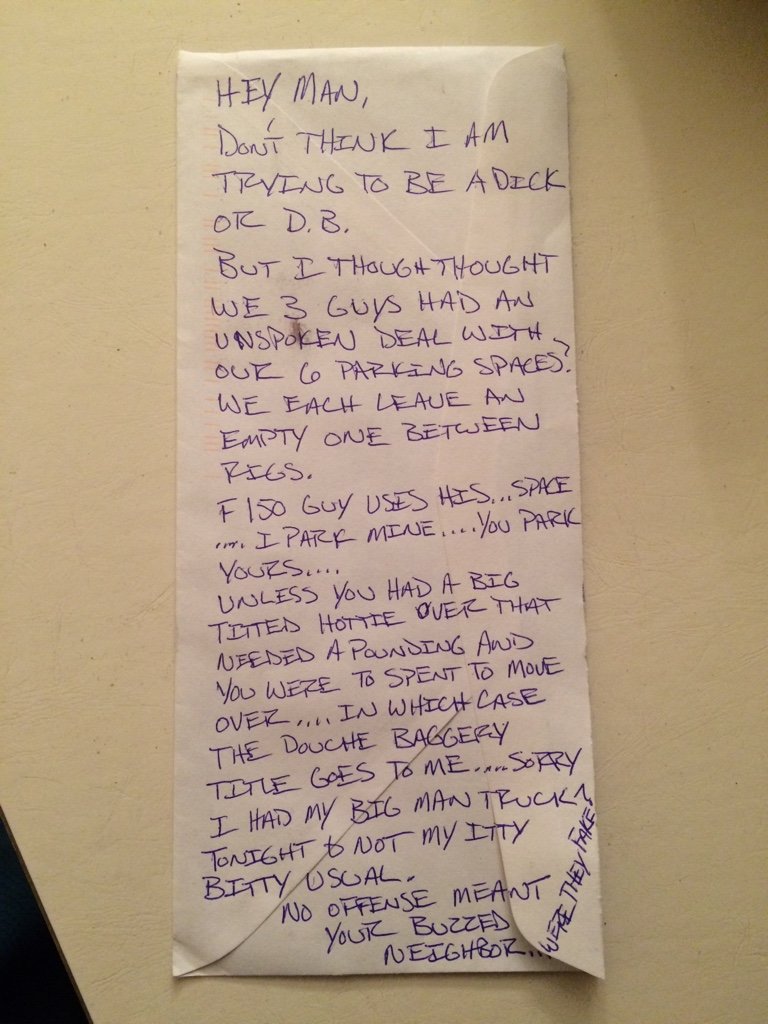 HEY MAN,
DON'T THINK I AM
TRYING TO BE A DICK
OR D.B.
BUT I THOUGH THOUGHT
WE 3 GUYS HAD AN
UNSPOKEN DEAL WITH
OUR 6 PARKING SPACES?
WE EACH LEAVE AN
EMPTY ONE BETWEEN
RIGS.
F150 GUY USES HIS...SPACE
.... I PARK MINE....YOU PARK
YOURS....
UNLESS YOU HAD A BIG
TITTED HOTTIE OVER THAT
NEEDED A POUNDING AND
YOU WERE TO SPENT TO MOVE
OVER.... IN WHICH CASE
THE DOUCHE BAGGERY
TITLE GOES TO ME.....SORRY
I HAD MY BIG MAN TRUCK?
TONIGHT & NOT MY ITTY
BITTY USUAL.
NO OFFENSE MEANT
YOUR BUZZED
NEIGHBOR...
WERE THEY FAKE?